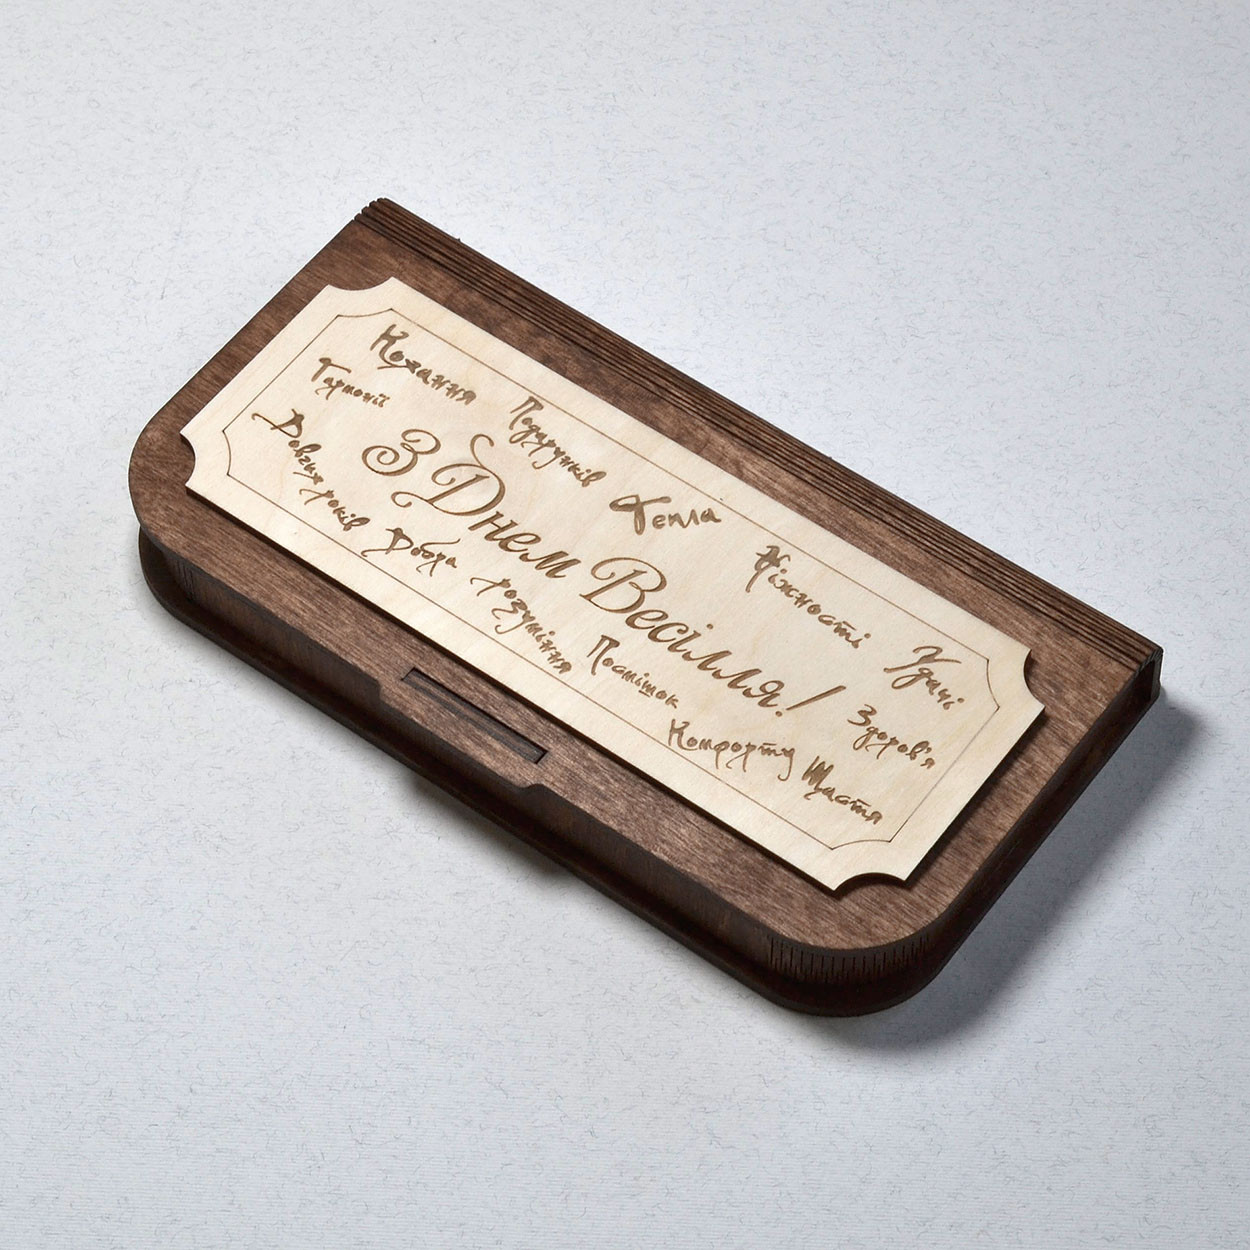 Кохання
Гармонії
Подарунків
Тепла
Ніжності
Удачі
З Днем Весілля!
Довгих років
Добра
розуміння
Посмішок
Комфорту
Здоров'я
Щастя